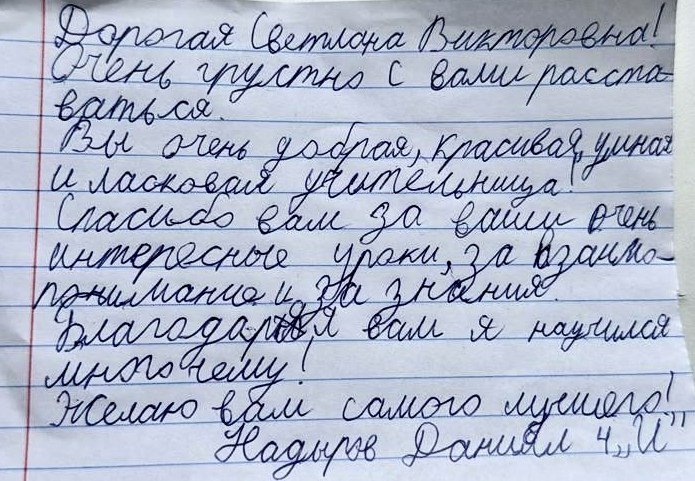 Дорогая Светлана Викторовна!
Очень грустно с вами расста-
ваться.
Вы очень добрая, красивая, умная
и ласковая учительница!
Спасибо вам за ваши очень
интересные уроки, за взаимо-
понимание и за знания.
Благодаря вам я научился
многочему!
Желаю вам самого лучшего!
Надыров Даниял 4 „И"